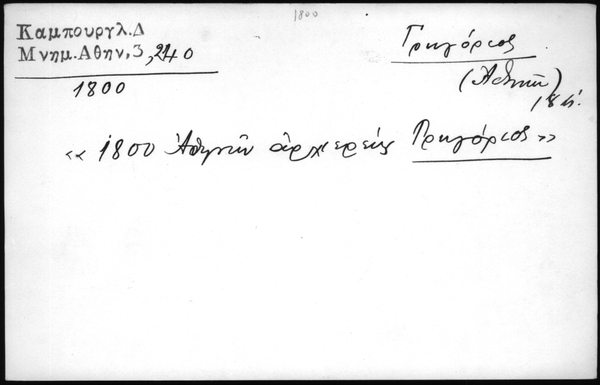 1800
Καμπουργλ.Δ
Μνημ.Αθην,3,240
1800
Γρηγόριος
(Ἀθηνῶν)
« 1800 Ἀθηνῶν ἀρχιερεὺς Γρηγόριος »